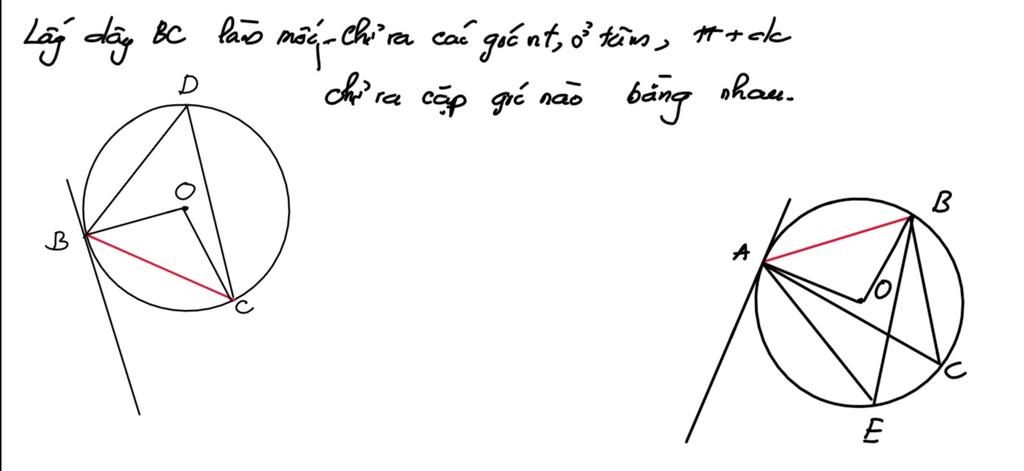 Lấy dây BC làm mốc, chỉ ra các góc nt, ở tâm, tt + dc
chỉ ra cặp góc nào bằng nhau.
D
O
B
C
B
A
O
C
E